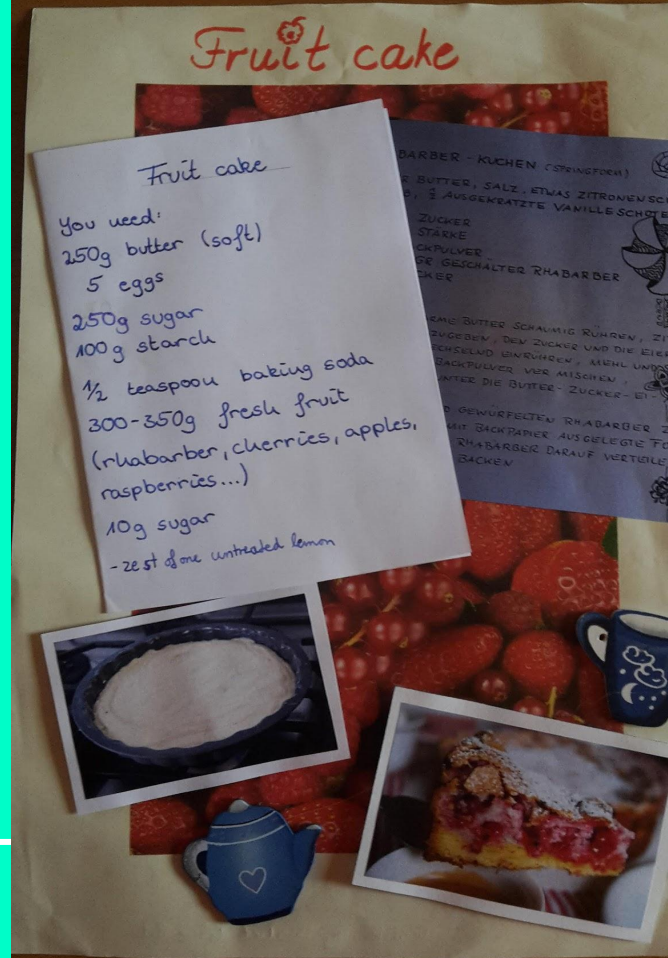 Fruit cake
Fruit cake
You need:
250g butter (soft)
5 eggs
250g sugar
100g starch
1/2 teaspoon baking soda
300-350g fresh fruit
(rhabarber, cherries, apples,
raspberries...)
10g sugar
- zest of one untreated lemon
BARBER - KUCHEN (SPRINGFORM)
BUTTER, SALZ, ETWAS ZITRONENSC
½ AUSGEKRATZTE VANILLESCHOTE
ZUCKER
STÄRKE
CKPULVER
GR GESCHÄLTER RHABARBER
CKER
RME BUTTER SCHAUMIG RÜHREN, ZI
ZUGEBEN, DEN ZUCKER UND DIE EIE
ECHSELND EINRÜHREN, MEHL UND
BACKPULVER VERMISCHEN
UNTER DIE BUTTER-ZUCKER-EI-
GEWÜRFELTEN RHABARBER Z
MIT BACKPAPIER AUSGELEGTE FO
RHABARBER DARAUF VERTEILE
BACKEN